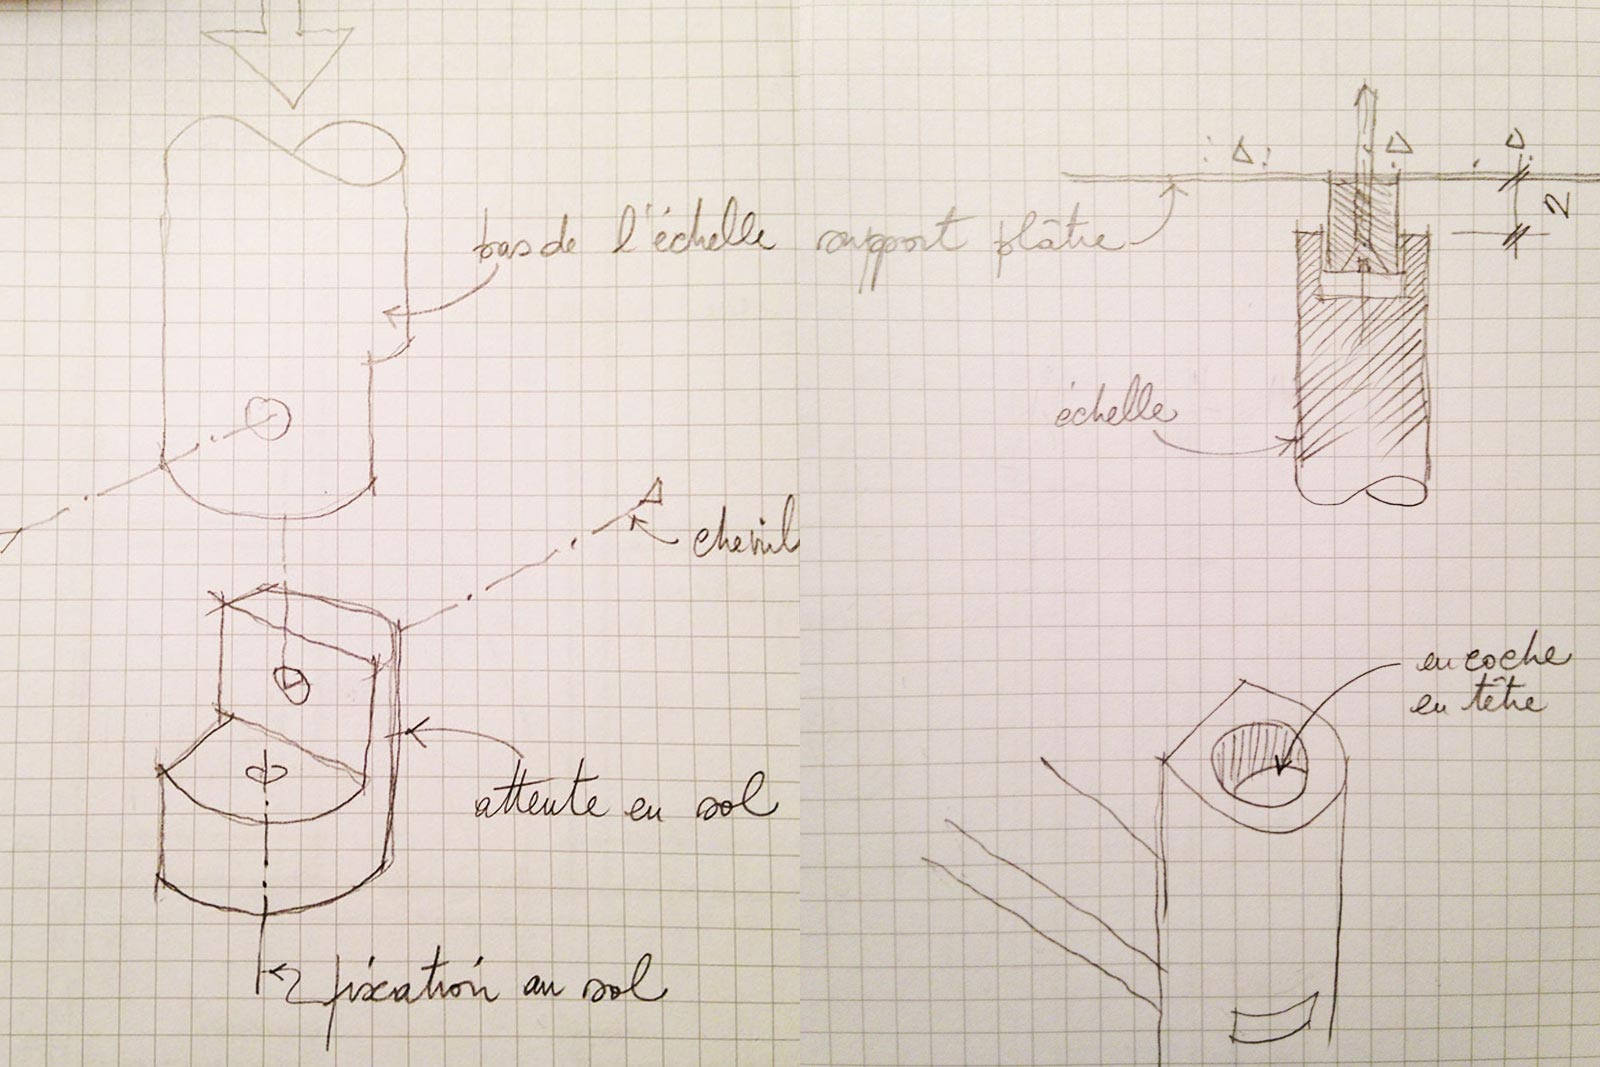 bas de l'échelle
chevil
attente en sol
fixation au sol
support plâtre
2
échelle
encoche
en tête